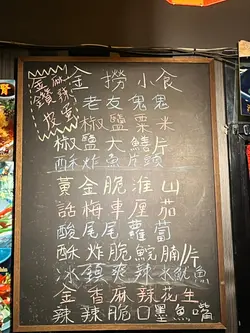 金麻辣
鑽
投
金撈小食
老友鬼鬼
椒鹽粟米
椒鹽大鱔片
酥炸魚片頭
黃金脆淮山
話梅車厘茄
酸尾尾蘿蔔
酥炸脆鯇腩片
冰鎮爽辣水魷魚
金香麻辣花生
辣辣脆口墨魚嘴